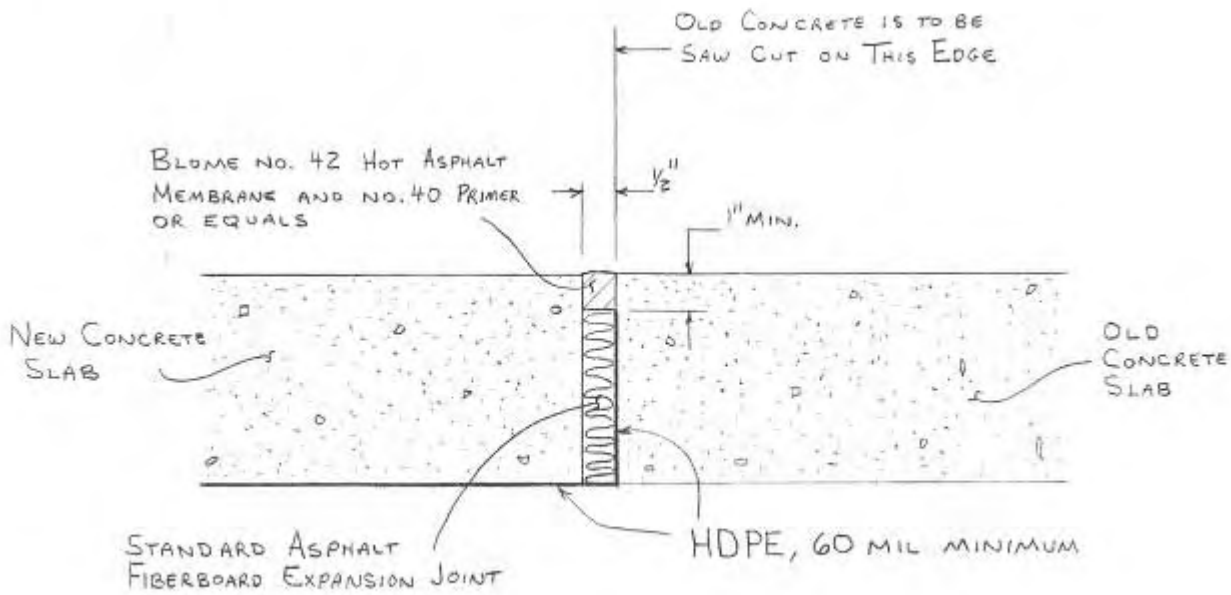 OLD CONCRETE IS TO BE
SAW CUT ON THIS EDGE
BLOME NO. 42 HOT ASPHALT
MEMBRANE AND NO. 40 PRIMER
OR EQUALS
1/2"
1" MIN.
NEW CONCRETE
SLAB
OLD
CONCRETE
SLAB
STANDARD ASPHALT
FIBERBOARD EXPANSION JOINT
HDPE, 60 MIL MINIMUM